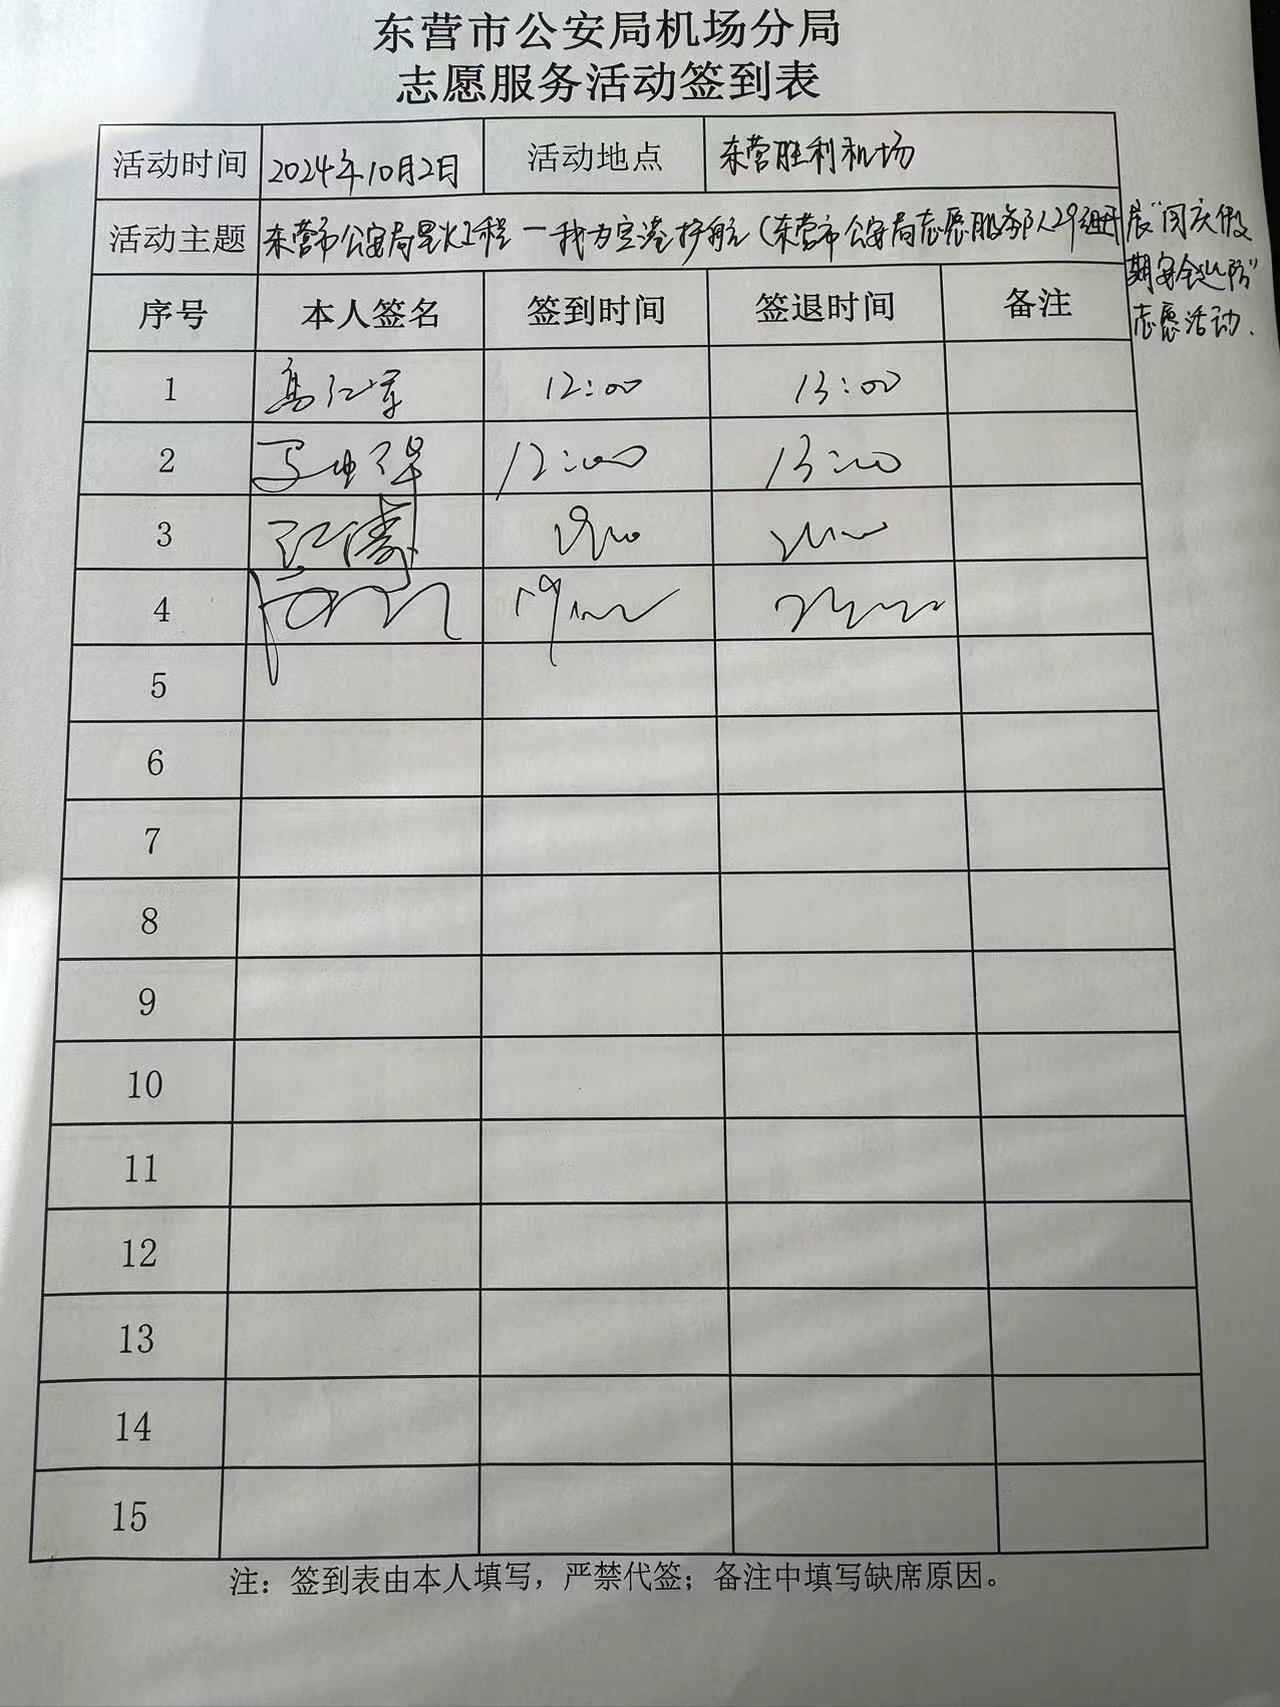 东营市公安局机场分局
志愿服务活动签到表
活动时间 2024年10月2日 活动地点 东营胜利机场
活动主题 东营市公安局星火工程一我为空港护航(东营市公安局志愿服务队29组开展"国庆假
期安全巡防"
志愿活动.
序号 本人签名 签到时间 签退时间 备注
1 12:00 13:00
2 12:00 13:00
3
4
5
6
7
8
9
10
11
12
13
14
15
注：签到表由本人填写，严禁代签；备注中填写缺席原因。